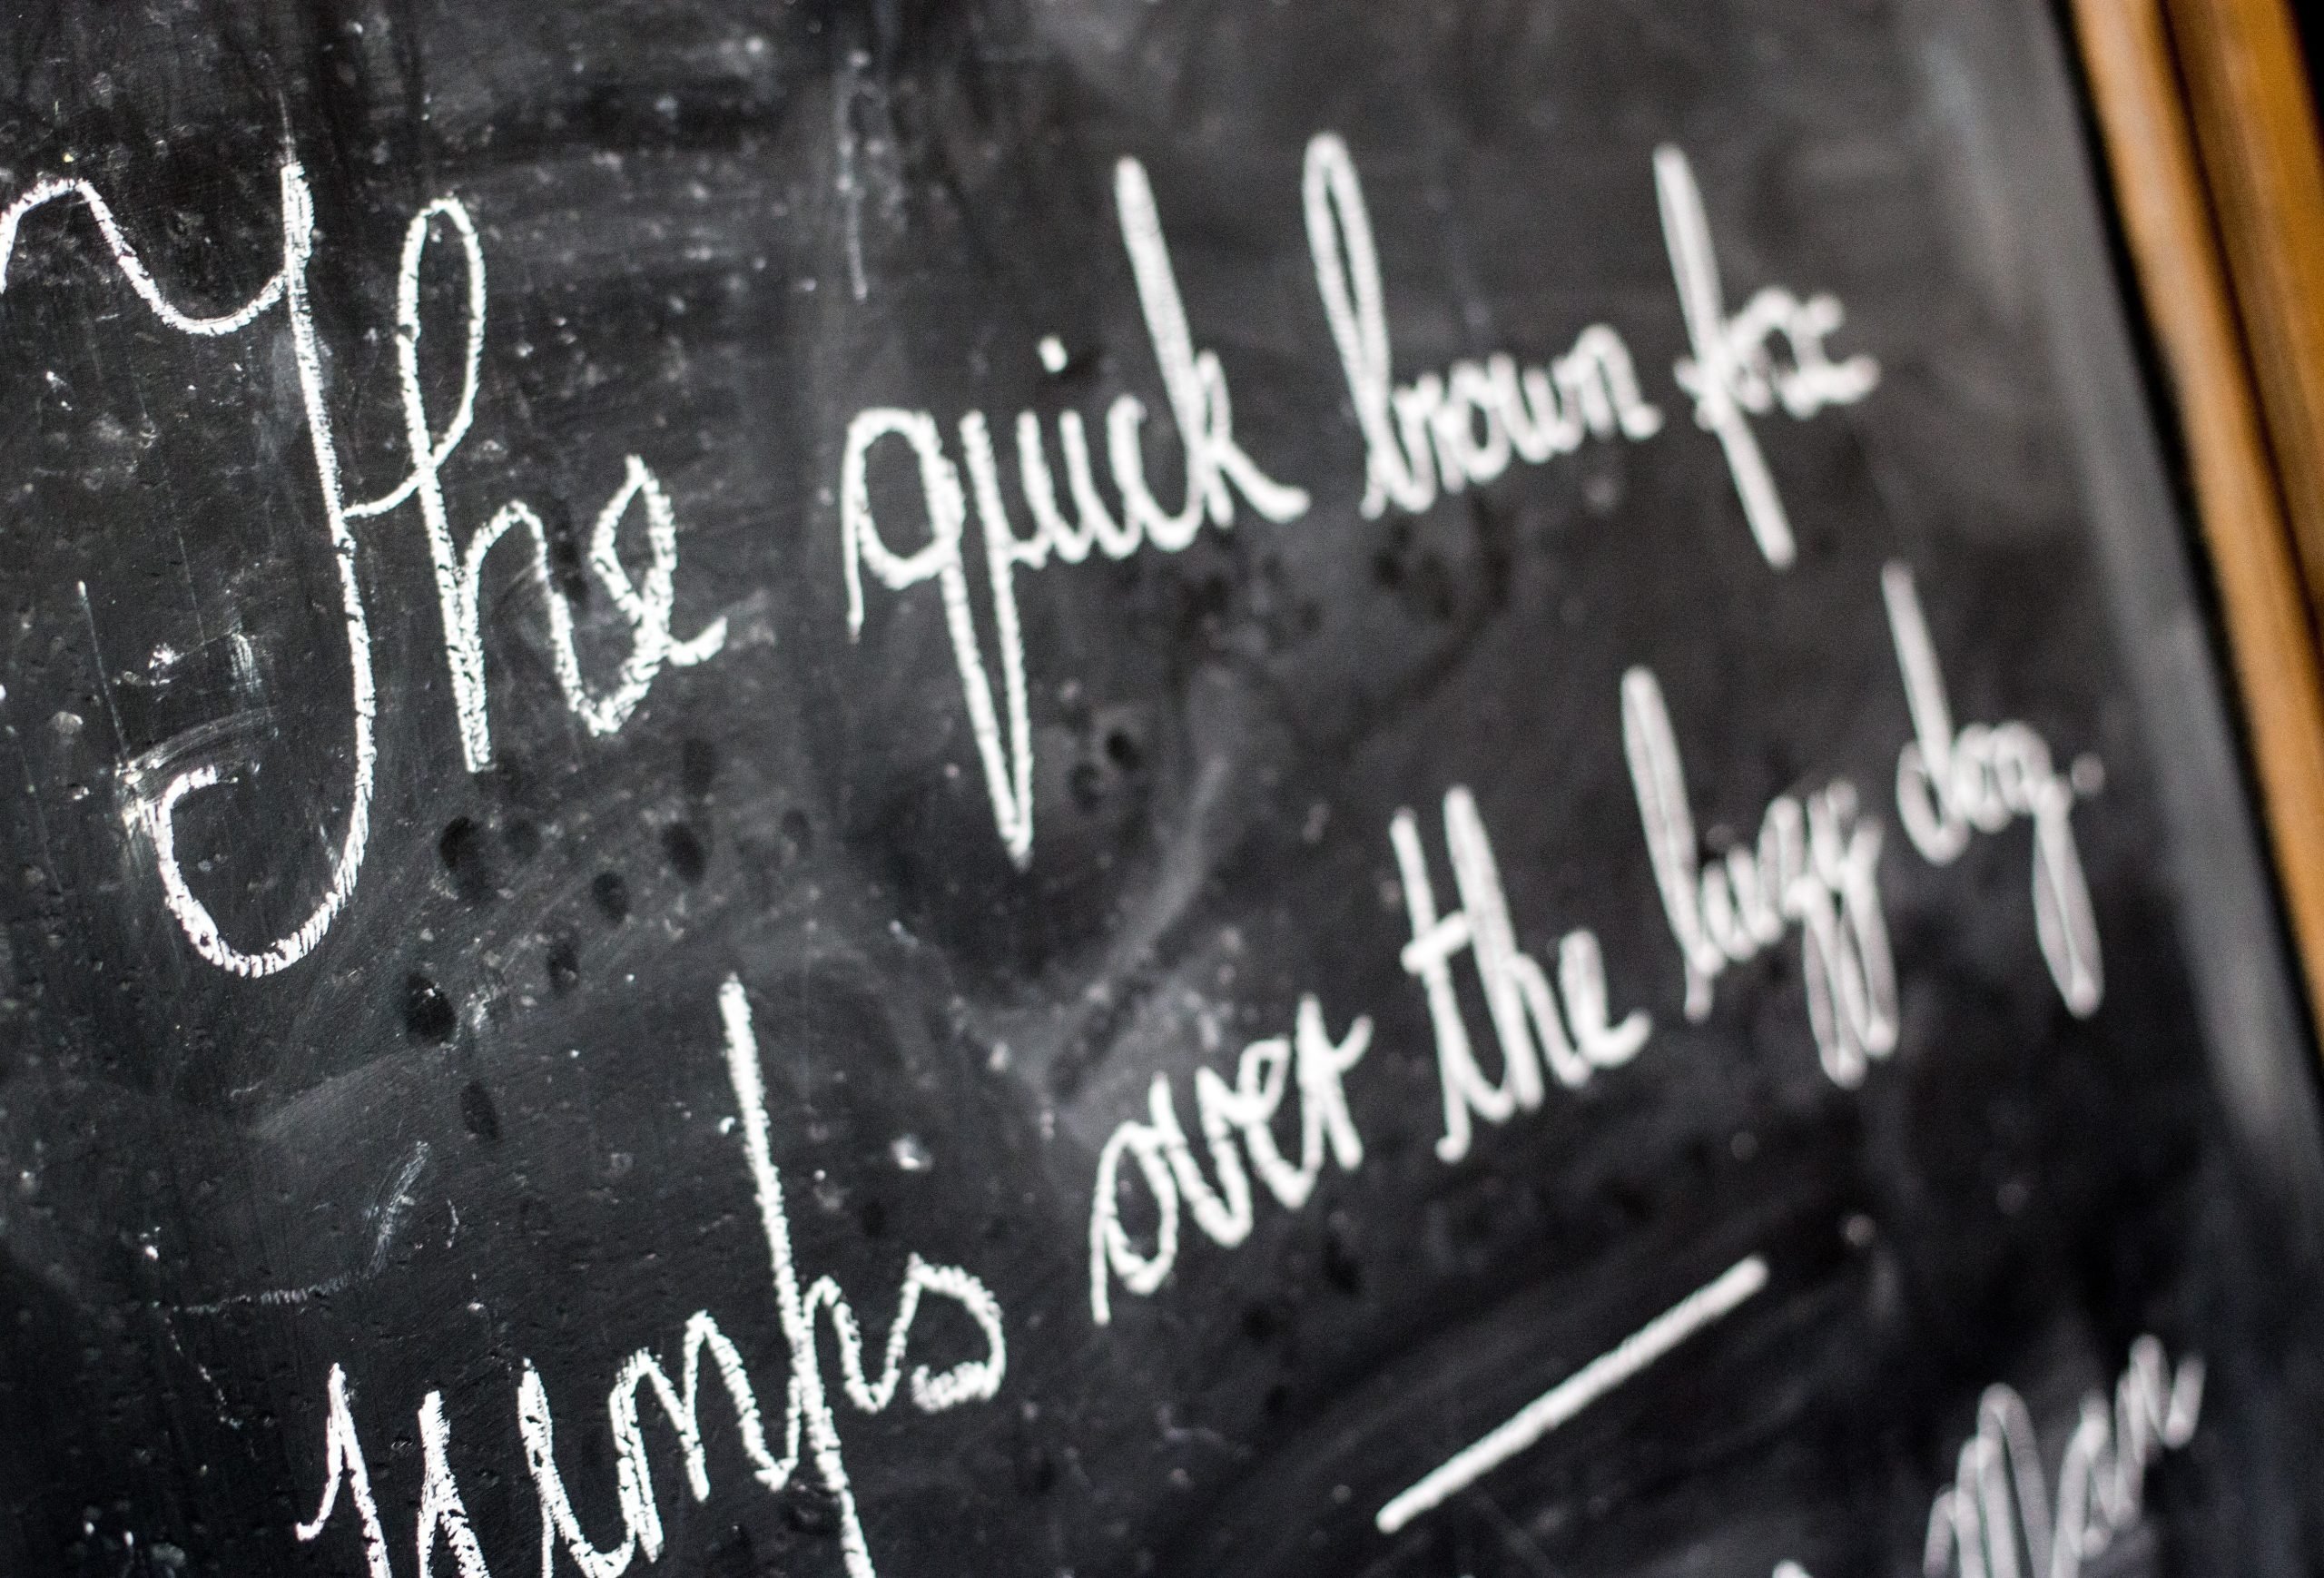 The quick brown fox
jumps over the lazy dog.
Man